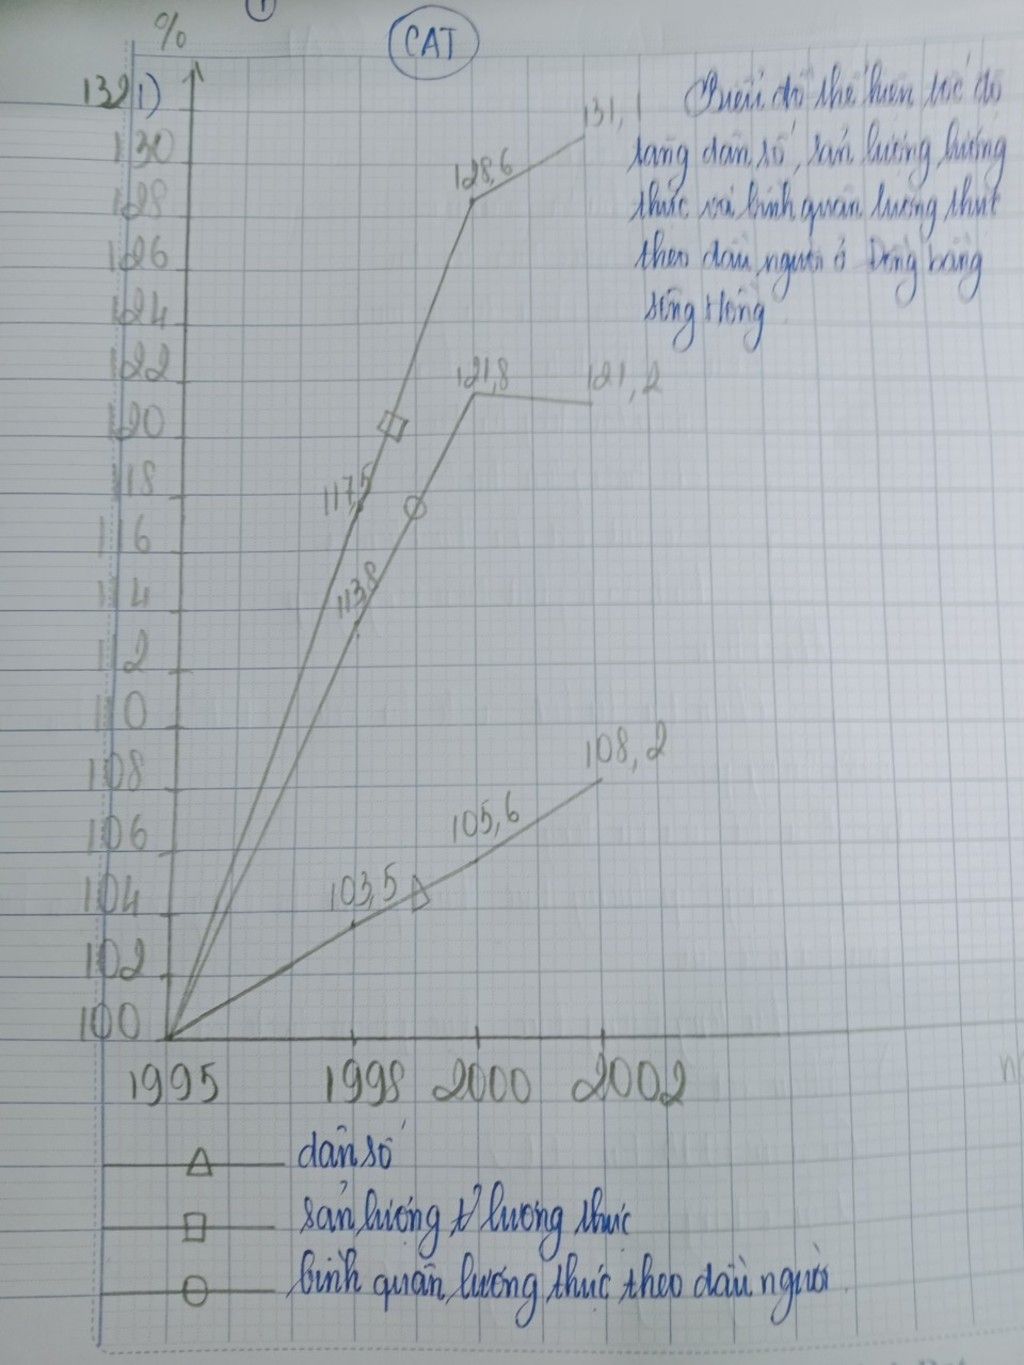 1
%
CAT
132
1)
130
128
126
124
122
120
118
116
114
112
110
108
106
104
102
100
Biểu đồ thể hiện tốc độ
tăng dân số, sản lượng lương
thực và bình quân lương thực
theo đầu người ở Đồng bằng
sông Hồng
131,1
128,6
121,8
121,2
117,5
113,8
108,2
105,6
103,5
1995 1998 2000 2002
dân số
sản lượng lương thực
bình quân lương thực theo đầu người